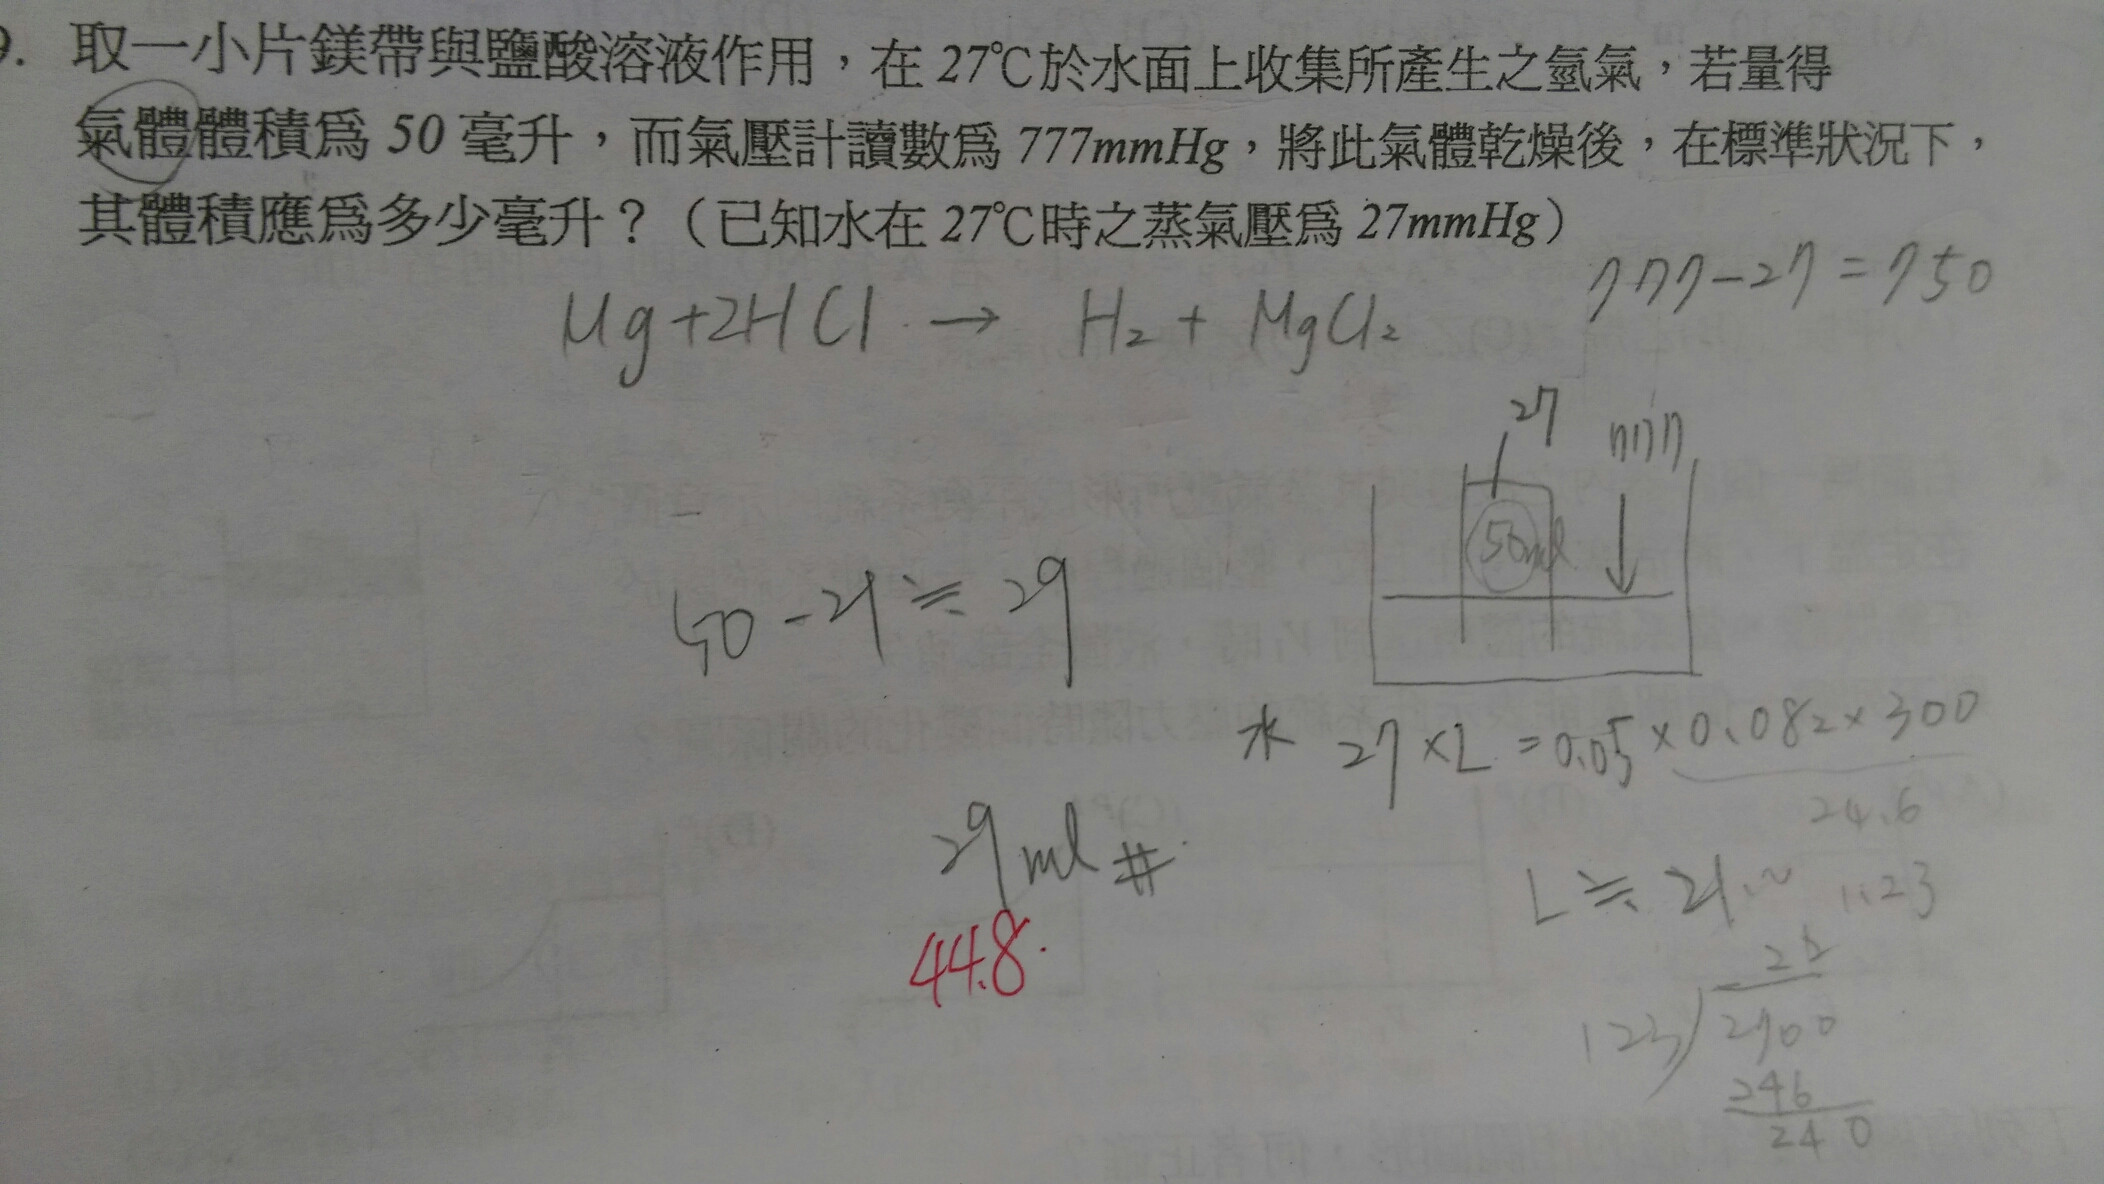 9. 取一小片鎂帶與鹽酸溶液作用，在 27℃於水面上收集所產生之氫氣，若量得
氣體體積為 50 毫升，而氣壓計讀數為 777mmHg，將此氣體乾燥後，在標準狀況下，
其體積應為多少毫升？（已知水在 27℃時之蒸氣壓為 27mmHg）
777-27=750
Mg+2HCl → H₂ + MgCl₂
27
777
50ml
50-21≒29
水 27×L=0.05×0.082×300
24.6
29ml #
L≒21.~
1.23
44.8.
22
123)2700
246
240